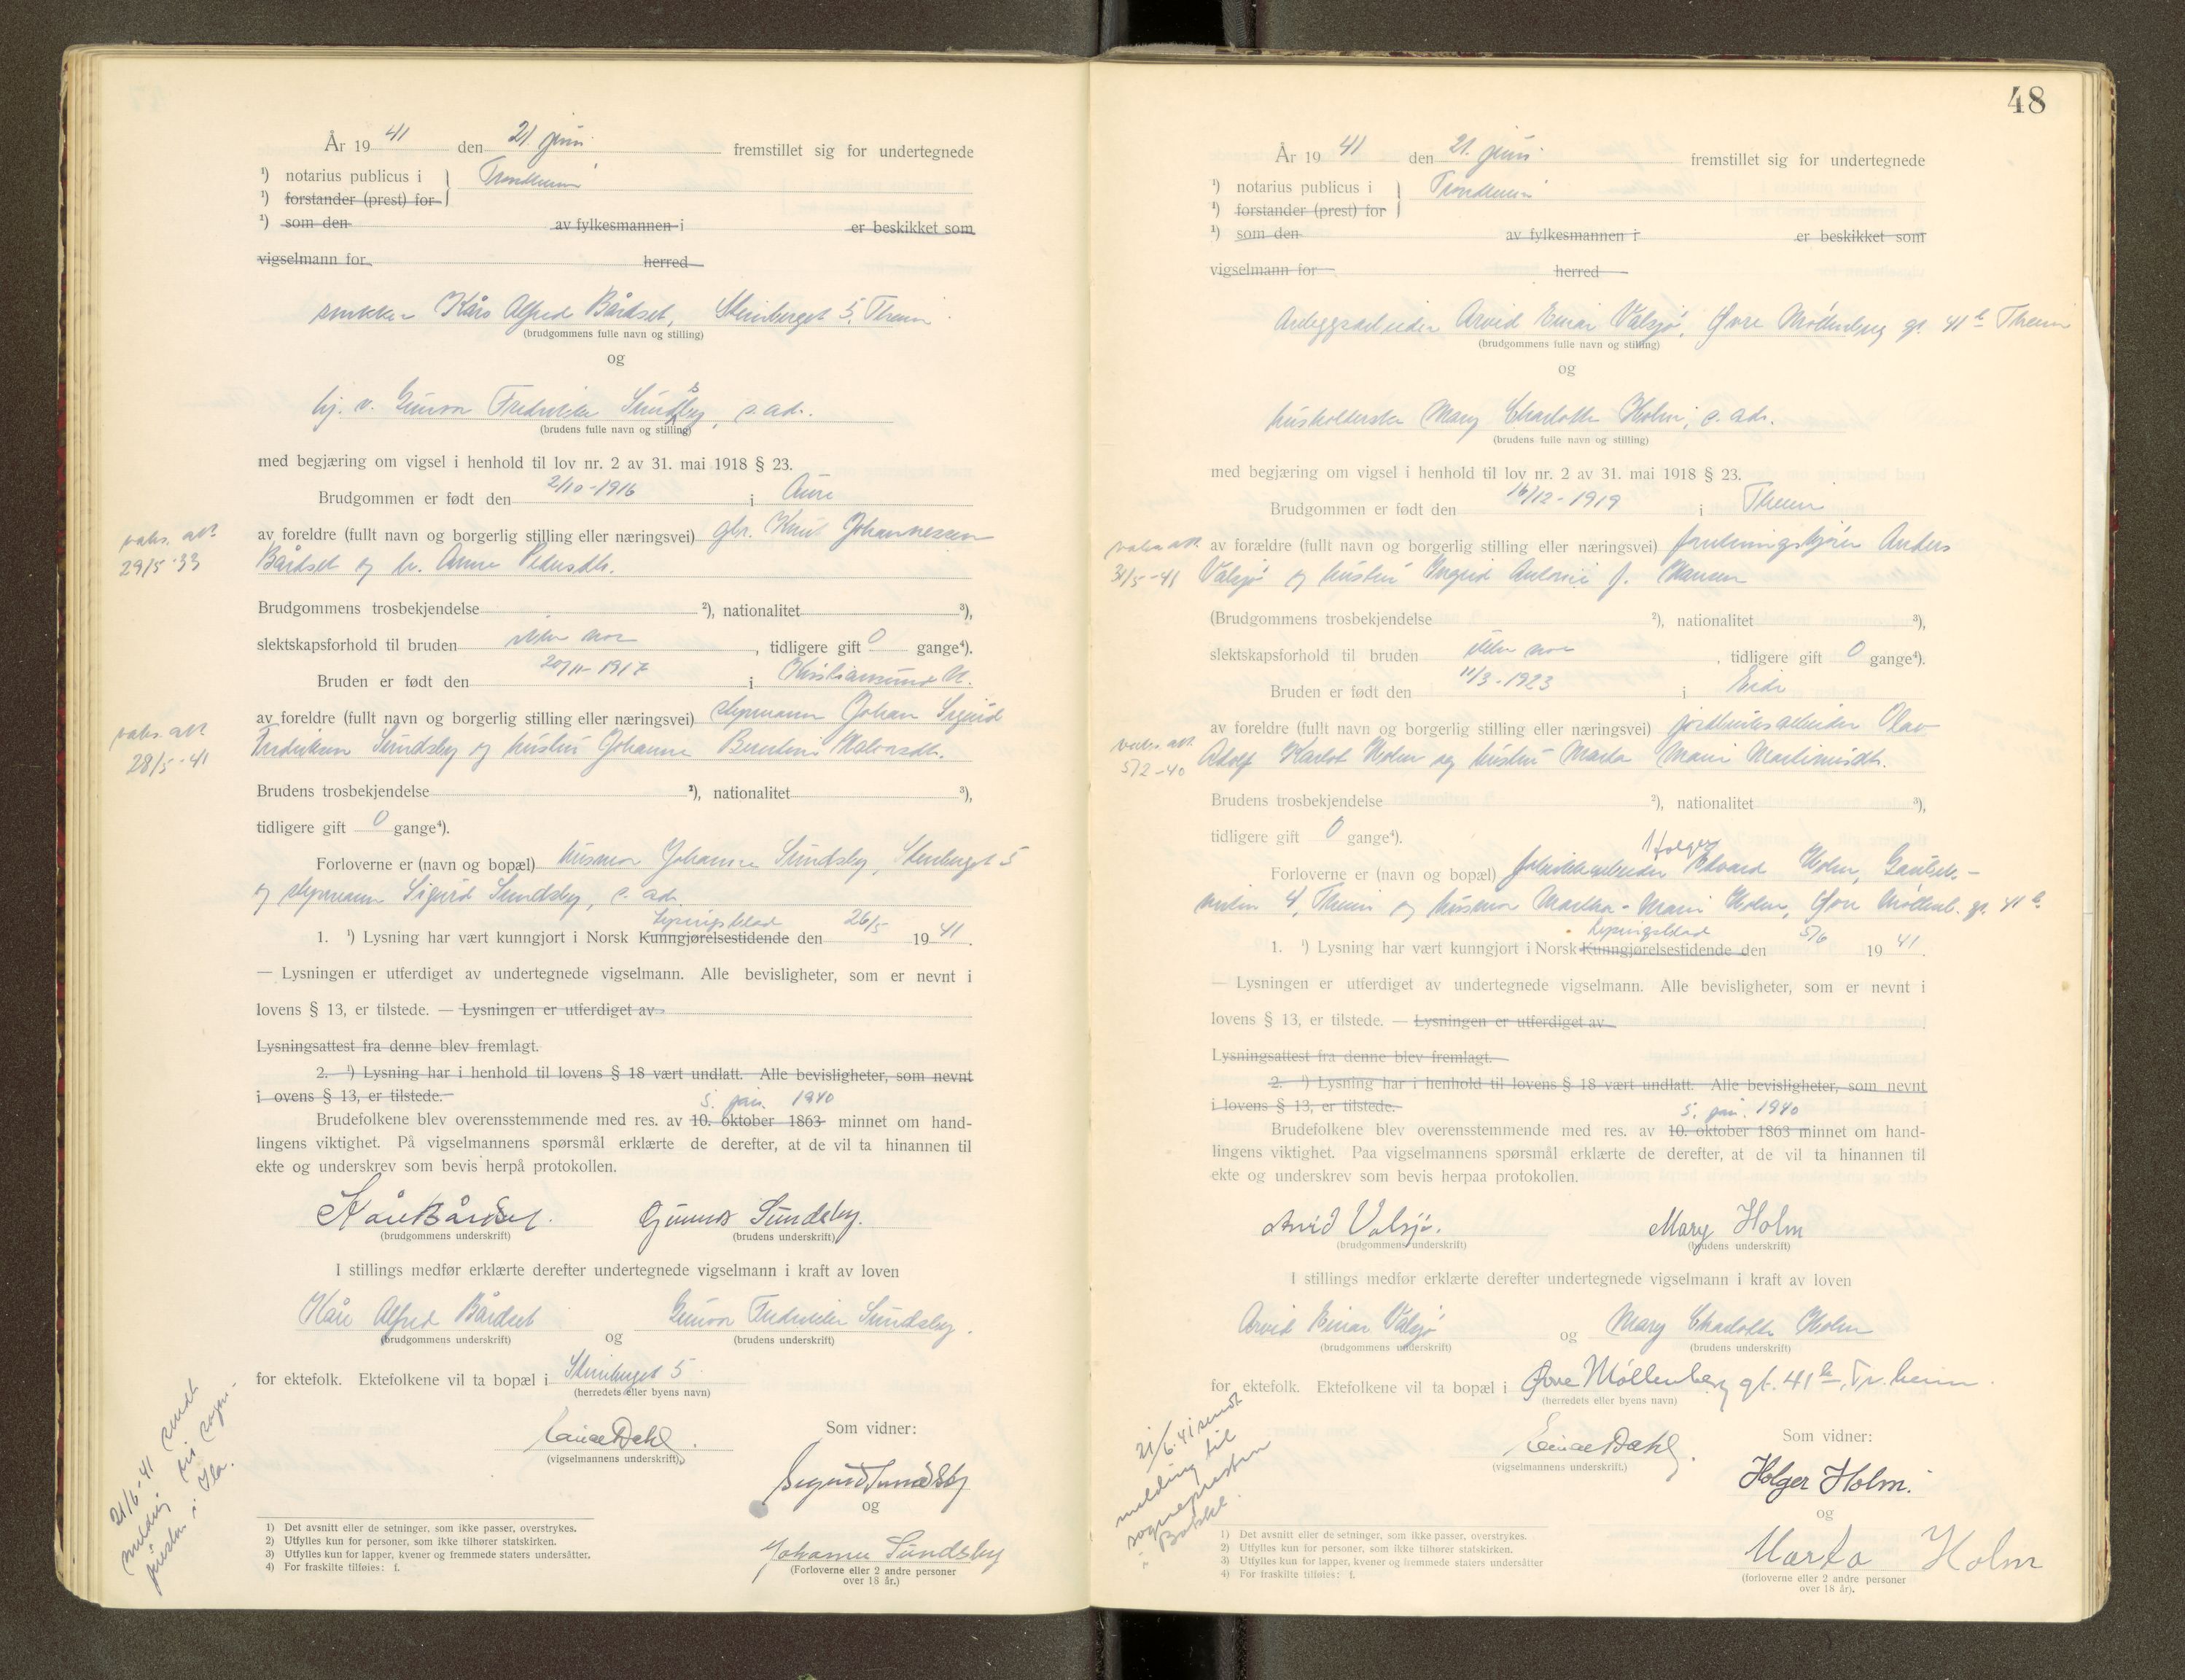 År 19 41 den 21. juni fremstillet sig for undertegnede
¹) notarius publicus i Trondheim
¹) forstander (prest) for
¹) som den av fylkesmannen i er beskikket som
vigselmann for herred
snekker Kåre Alfred Bårdset, Steinberget 5, Theim
(brudgommens fulle navn og stilling)
og
hj. v. Gunvor Fredrikke Sundsby, s. ad.
(brudens fulle navn og stilling)
med begjæring om vigsel i henhold til lov nr. 2 av 31. mai 1918 § 23.
Brudgommen er født den 2/10-1916 i Aure
vaks. att.
29/5-33
av foreldre (fullt navn og borgerlig stilling eller næringsvei) gbr. Knut Johannessen
Bårdset og h. Anne Pedersdtr.
Brudgommens trosbekjendelse ²), nationalitet ³),
slektskapsforhold til bruden , tidligere gift 0 gange⁴).
Bruden er født den 20/11-1917 i Kristiansund N.
vaks. att
28/5-41
av foreldre (fullt navn og borgerlig stilling eller næringsvei) skipsmann Johan Sigurd
Fredriksen Sundsby og hustru Johanne Halvorsdtr.
Brudens trosbekjendelse ²), nationalitet ³),
tidligere gift 0 gange⁴).
Forloverne er (navn og bopæl) husmor Johanne Sundsby, Steinberget 5
og skipsmann Sigurd Sundsby, s. ad.
1. ¹) Lysning har vært kunngjort i Norsk Kunngjørelsestidende Lysingsblad den 26/5 19 41.
— Lysningen er utferdiget av undertegnede vigselmann. Alle bevisligheter, som er nevnt i
lovens § 13, er tilstede. — Lysningen er utferdiget av
Lysningsattest fra denne blev fremlagt.
2. ¹) Lysning har i henhold til lovens § 18 vært undlatt. Alle bevisligheter, som nevnt
i ovens § 13, er tilstede.
5. jan. 1940
Brudefolkene blev overensstemmende med res. av 10. oktober 1863 minnet om hand-
lingens viktighet. På vigselmannens spørsmål erklærte de derefter, at de vil ta hinannen til
ekte og underskrev som bevis herpå protokollen.
Kåre Bårdset. Gunvor Sundsby.
(brudgommens underskrift) (brudens underskrift)
I stillings medfør erklærte derefter undertegnede vigselmann i kraft av loven
Kåre Alfred Bårdset og Gunvor Fredrikke Sundsby.
(brudgommens underskrift) (brudens underskrift)
for ektefolk. Ektefolkene vil ta bopæl i Steinberget 5
(herredets eller byens navn)
Einar Dahl.
(vigselmannens underskrift)
Som vidner:
Sigurd Sundsby
og
Johanne Sundsby
(Forloverne eller 2 andre personer
over 18 år.)
21/6-41 sendt
melding til sogne-
presten i Ila.
1) Det avsnitt eller de setninger, som ikke passer, overstrykes.
2) Utfylles kun for personer, som ikke tilhører statskirken.
3) Utfylles kun for lapper, kvener og fremmede staters undersåtter.
4) For fraskilte tilføies: f.
48
År 19 41 den 21. juni fremstillet sig for undertegnede
¹) notarius publicus i Trondheim
¹) forstander (prest) for
¹) som den av fylkesmannen i er beskikket som
vigselmann for herred
Anleggsarbeider Arvid Einar Valsjø, Øvre Møllenberg gt. 41 b Theim
(brudgommens fulle navn og stilling)
og
husholderske Mary Charlotte Holm, s. ads.
(brudens fulle navn og stilling)
med begjæring om vigsel i henhold til lov nr. 2 av 31. mai 1918 § 23.
Brudgommen er født den 16/12-1919 i Theim
vaks. att.
31/5-41
av forældre (fullt navn og borgerlig stilling eller næringsvei) Anders
Valsjø og hustru Ingrid Antonie f. Hansen
(Brudgommens trosbekjendelse ²), nationalitet ³),
slektskapsforhold til bruden , tidligere gift 0 gange⁴).
Bruden er født den 11/3-1923 i Eide
vaks. att.
5/2-40
av foreldre (fullt navn og borgerlig stilling eller næringsvei) jordbruksarbeider Olav
Adolf Karlot Holm og hustru Marta Marie Martinusdtr.
Brudens trosbekjendelse ²), nationalitet ³),
tidligere gift 0 gange⁴).
Holger
Forloverne er (navn og bopæl) fabrikkarbeider Edvard Holm,
4, Theim og husmor Martha Marie Holm, Øvre Møllenb. gt. 41 b.
1. ¹) Lysning har vært kunngjort i Norsk Kunngjørelsestidende Lysingsblad den 5/6 19 41.
— Lysningen er utferdiget av undertegnede vigselmann. Alle bevisligheter, som er nevnt i
lovens § 13, er tilstede. — Lysningen er utferdiget av
Lysningsattest fra denne blev fremlagt.
2. ¹) Lysning har i henhold til lovens § 18 vært undlatt. Alle bevisligheter, som nevnt
i lovens § 13, er tilstede.
5. jan. 1940
Brudefolkene blev overensstemmende med res. av 10. oktober 1863 minnet om hand-
lingens viktighet. Paa vigselmannens spørsmål erklærte de derefter, at de vil ta hinannen til
ekte og underskrev som bevis herpaa protokollen.
Arvid Valsjø. Mary Holm
(brudgommens underskrift) (brudens underskrift)
I stillings medfør erklærte derefter undertegnede vigselmann i kraft av loven
Arvid Einar Valsjø og Mary Charlotte Holm
(brudgommens underskrift) (brudens underskrift)
for ektefolk. Ektefolkene vil ta bopæl i Øvre Møllenberg gt. 41 b, Tr.heim.
(herredets eller byens navn)
Einar Dahl.
(vigselmannens underskrift.)
Som vidner:
Holger Holm.
og
Marta Holm
(forloverne eller 2 andre personer
over 18 år).
21/6.41 sendt
melding til
sognepresten
i Bakke.
1) Det avsnitt eller de setninger, som ikke passer, overstrykes.
2) Utfylles kun for personer, som ikke tilhører statskirken.
3) Utfylles kun for lapper, kvener og fremmede staters undersåtter
4) For fraskilte tilføies: f.